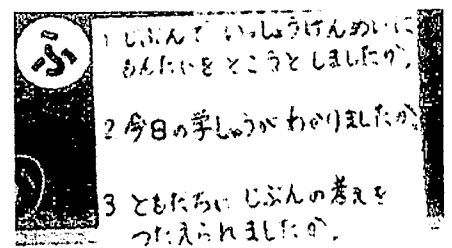 ふ
1 じぶんで いっしょうけんめいに
もんだいを とこうと しましたか。
2 今日の学しゅうが わかりましたか。
3 ともだちに じぶんの考えを
つたえられましたか。